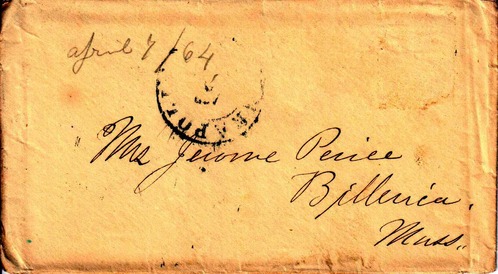 april 7/64
Mrs Jerome Peirce
Billerica.
Mass.